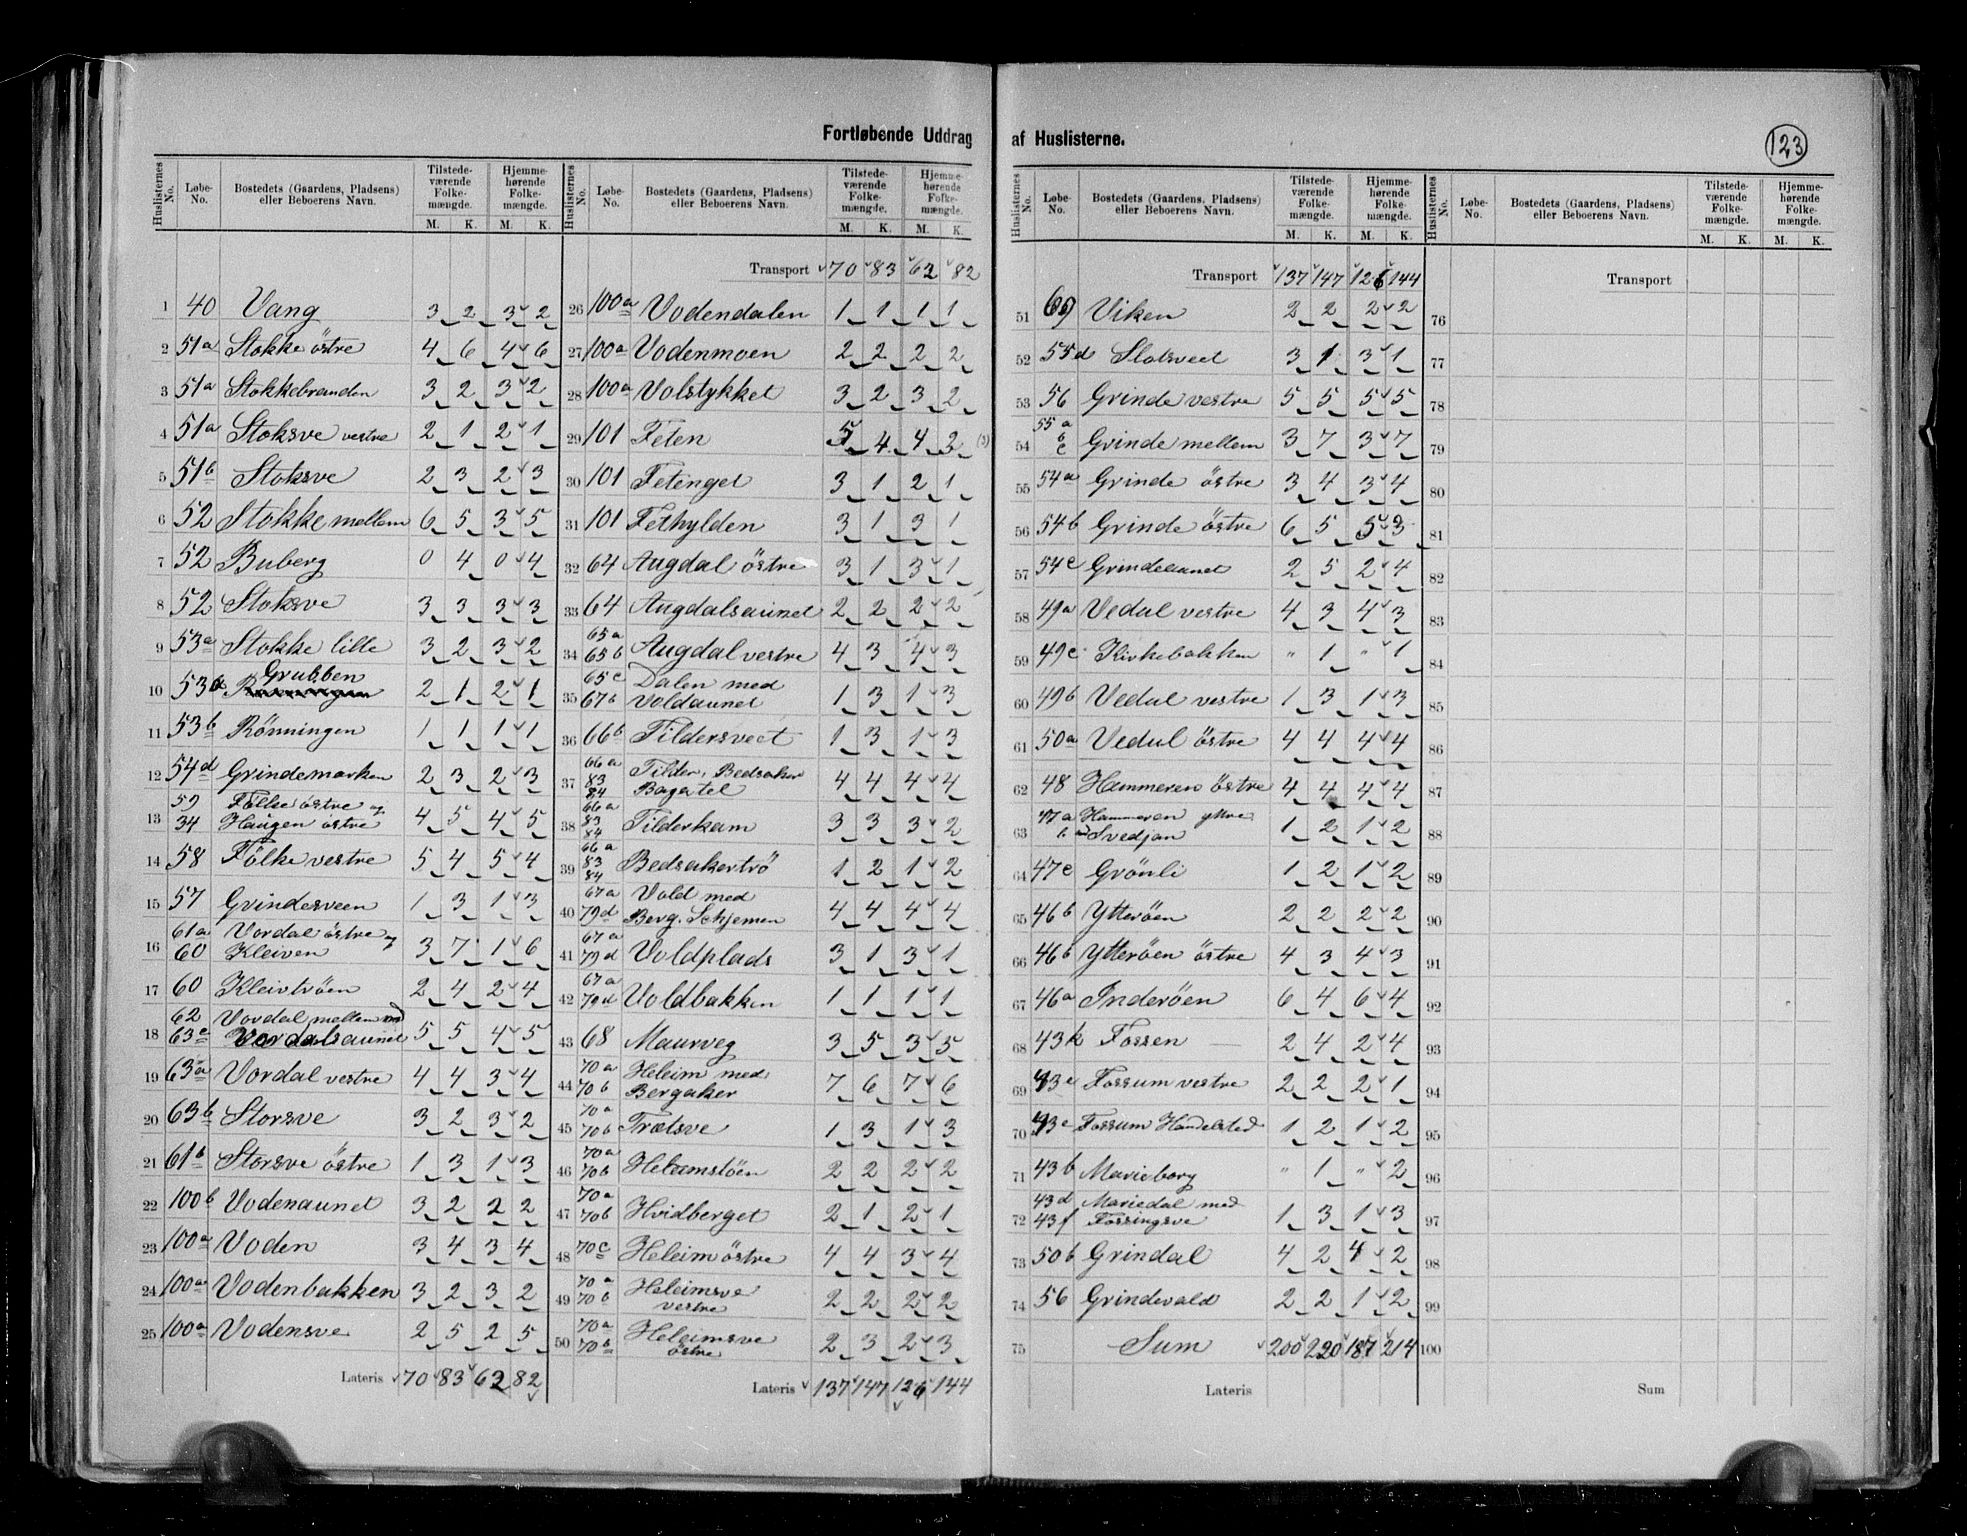 Fortløbende Uddrag af Huslisterne.
123
Huslisternes No. Løbe-No. Bostedets (Gaardens, Pladsens) eller Beboerens Navn. Tilstedeværende Folkemængde. M. K. Hjemmehørende Folkemængde. M. K.
1 40 Vang 3 2 3 2
2 51a Stokke östre 4 6 4 6
3 51a Stokkebranden 3 2 3 2
4 51a Stoksve vestre 2 1 2 1
5 51b Stoksve 2 3 2 3
6 52 Stokke mellem 6 5 3 5
7 52 Buberg 0 4 0 4
8 52 Stoksve 3 3 3 3
9 53a Stokke lille 3 2 3 2
10 53a Grubben 2 1 2 1
11 53b Rönningen 1 1 1 1
12 54d Grindemarken 2 3 2 3
13 59 34 Fölke östre og Haugen östre 4 5 4 5
14 58 Fölke vestre 5 4 5 4
15 57 Grindesveen 1 3 1 3
16 61a 60 Vordal östre og Kleiven 3 7 1 6
17 60 Kleivtröen 2 4 2 4
18 62 63c Vordal mellem med Vordalsaunet 5 5 4 5
19 63a Vordal vestre 4 4 3 4
20 63b Storsve 3 2 3 2
21 61b Storsve östre 1 3 1 3
22 100b Vodenaunet 3 2 2 2
23 100a Voden 3 4 3 4
24 100a Vodenbakken 3 2 3 2
25 100a Vodensve 2 5 2 5
Lateris 70 83 62 82
Huslisternes No. Løbe-No. Bostedets (Gaardens, Pladsens) eller Beboerens Navn. Tilstedeværende Folkemængde. M. K. Hjemmehørende Folkemængde. M. K.
Transport 70 83 62 82
26 100a Vodendalen 1 1 1 1
27 100a Vodenmoen 2 2 2 2
28 100a Volstykket 3 2 3 2
29 101 Feten 5 4 4 2 (3)
30 101 Fetenget 3 1 2 1
31 101 Fethylden 3 1 3 1
32 64 Augdal östre 3 1 3 1
33 64 Augdalsaunet 2 2 2 2
34 65a 65b Augdal vestre 4 3 4 3
35 65c 67b Dalen med Voldaunet 1 3 1 3
36 66b Tildersveet 1 3 1 3
37 66a 83 84 Tilder, Bedsaker Bagatel 4 4 4 4
38 66a 83 84 Tilderkam 3 3 3 2
39 66a 83 84 Bedsakertrö 1 2 1 2
40 67a 79d Vold med Berg. Schjemen 4 4 4 4
41 67a 79d Voldplads 3 1 3 1
42 67a 79d Voldbakken 1 1 1 1
43 68 Maurveg 3 5 3 5
44 70a 70b Heleim med Bergaker 7 6 7 6
45 70a 70b Trætsve 1 3 1 3
46 70a 70b Heleimstöen 2 2 2 2
47 70a 70b Hvidberget 2 1 2 1
48 70c Heleim östre 4 4 3 4
49 70a 70b Heleimsve vestre 2 2 2 2
50 70a 70b Heleimsve östre 2 3 2 3
Lateris 137 147 126 144
Huslisternes No. Løbe-No. Bostedets (Gaardens, Pladsens) eller Beboerens Navn. Tilstedeværende Folkemængde. M. K. Hjemmehørende Folkemængde. M. K.
Transport 137 147 126 144
51 69 Viken 2 2 2 2
52 55d Slotsveet 3 1 3 1
53 56 Grinde vestre 5 5 5 5
54 55a b c Grinde mellem 3 7 3 7
55 54a Grinde östre 3 4 3 4
56 54b Grinde östre 6 5 5 3
57 54c Grindeaunet 2 5 2 4
58 49a Vedul vestre 4 3 4 3
59 49c Kirkebakken " 1 " 1
60 49b Vedul vestre 1 3 1 3
61 50a Vedul östre 4 4 4 4
62 48 Hammeren östre 4 4 4 4
63 47a b Hammeren yttre med Svedjan 1 2 1 2
64 47c Grönli 1 2 1 2
65 46b Ytteröen 2 2 2 2
66 46b Ytteröen östre 4 3 4 3
67 46a Inderöen 6 4 6 4
68 43k Fossen 2 4 2 4
69 43c Fossum vestre 2 2 2 1
70 43c Fossum Handelsted 1 2 1 2
71 43b Marieborg " 1 " 2
72 43d 43f Mariedal med Fossingsve 1 3 1 3
73 50b Grindal 4 2 4 2
74 56 Grindevald 2 2 1 2
75 Sum 200 220 187 214
Lateris
Huslisternes No. Løbe-No. Bostedets (Gaardens, Pladsens) eller Beboerens Navn. Tilstedeværende Folkemængde. M. K. Hjemmehørende Folkemængde. M. K.
Transport
76
77
78
79
80
81
82
83
84
85
86
87
88
89
90
91
92
93
94
95
96
97
98
99
100
Sum